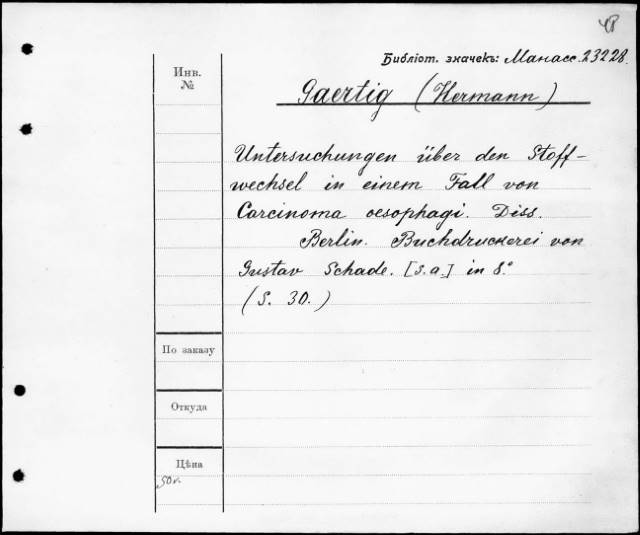 Библіот. значекъ: Манасс. 23228.
Инв.
№
Gaertig (Hermann)
Untersuchungen über den Stoff-
wechsel in einem Fall von
Carcinoma oesophagi. Diss.
Berlin. Buchdruckerei von
Gustav Schade. [s.a.] in 8.°
(S. 30.)
По заказу
Откуда
Цѣна
50к.